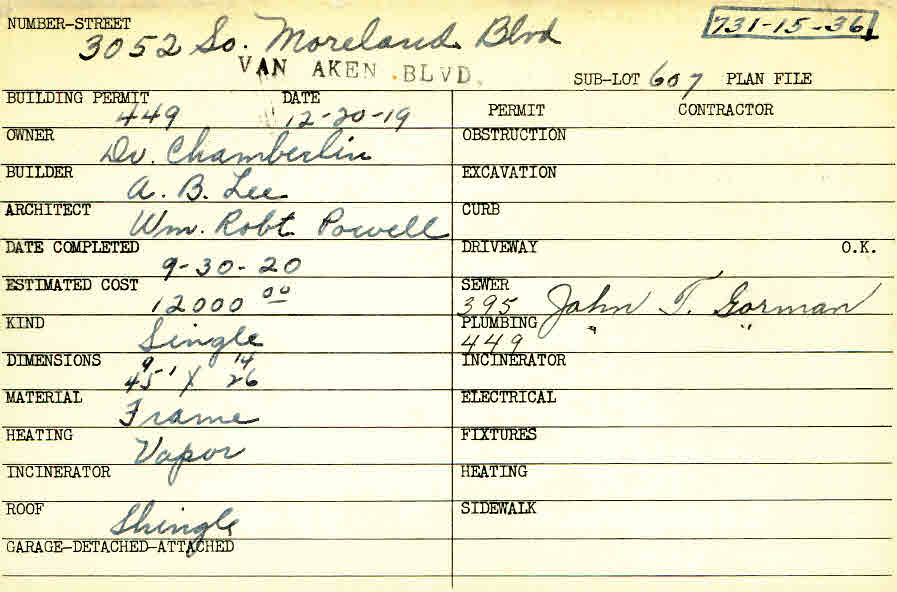 NUMBER-STREET
3052 So. Moreland Blvd
731-15-36
VAN AKEN BLVD.
SUB-LOT 607 PLAN FILE
BUILDING PERMIT DATE
449 12-20-19
PERMIT CONTRACTOR
OWNER
Dr. Chamberlin
OBSTRUCTION
BUILDER
A. B. Lee
EXCAVATION
ARCHITECT
Wm. Robt. Powell
CURB
DATE COMPLETED
9-30-20
DRIVEWAY O.K.
ESTIMATED COST
12000 00
SEWER
395 John T. Gorman
KIND
Single
PLUMBING " "
449
DIMENSIONS 9 14
45-1 X 26
INCINERATOR
MATERIAL
Frame
ELECTRICAL
HEATING
Vapor
FIXTURES
INCINERATOR
HEATING
ROOF
Shingle
SIDEWALK
GARAGE-DETACHED-ATTACHED